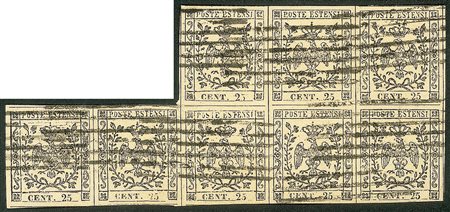 POSTE ESTENSI POSTE ESTENSI POSTE ESTENSI
CENT. 25 CENT. 25 CENT. 25
POSTE ESTENSI POSTE ESTENSI POSTE ESTENSI POSTE ESTENSI POSTE ESTENSI
CENT. 25 CENT. 25 CENT. 25 CENT. 25 CENT. 25